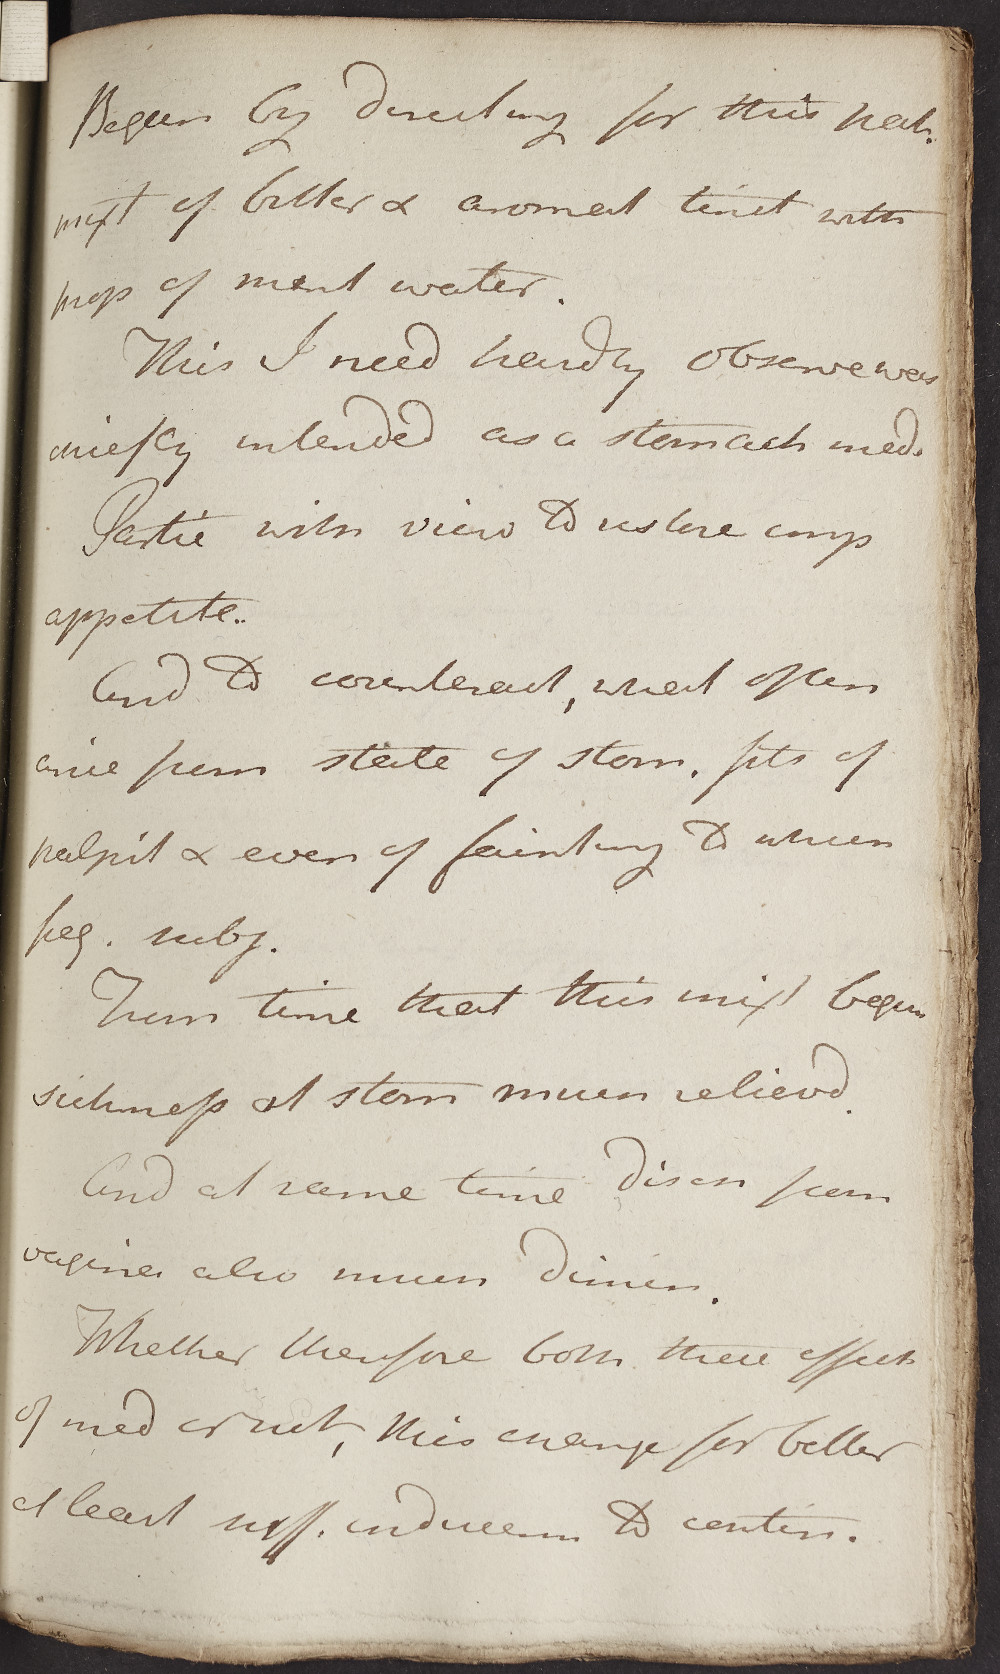 Began by directing for this pat.
mixt of bitter & aromat tinct with
prop of ment water.
This I need hardly observe was
chiefly intended as a stomach med.
Partic with view to restore imp
appetite.
And to counteract, what often
arise from state of stom. fits of
palpit & even of fainting to which
freq. subj.
From time that this mixt begun
sickness at stom much relievd.
And at same time disch from
vagina also much dimin.
Whether therefore both these effects
of med or not, this change for better
at least suff. inducem to contin.